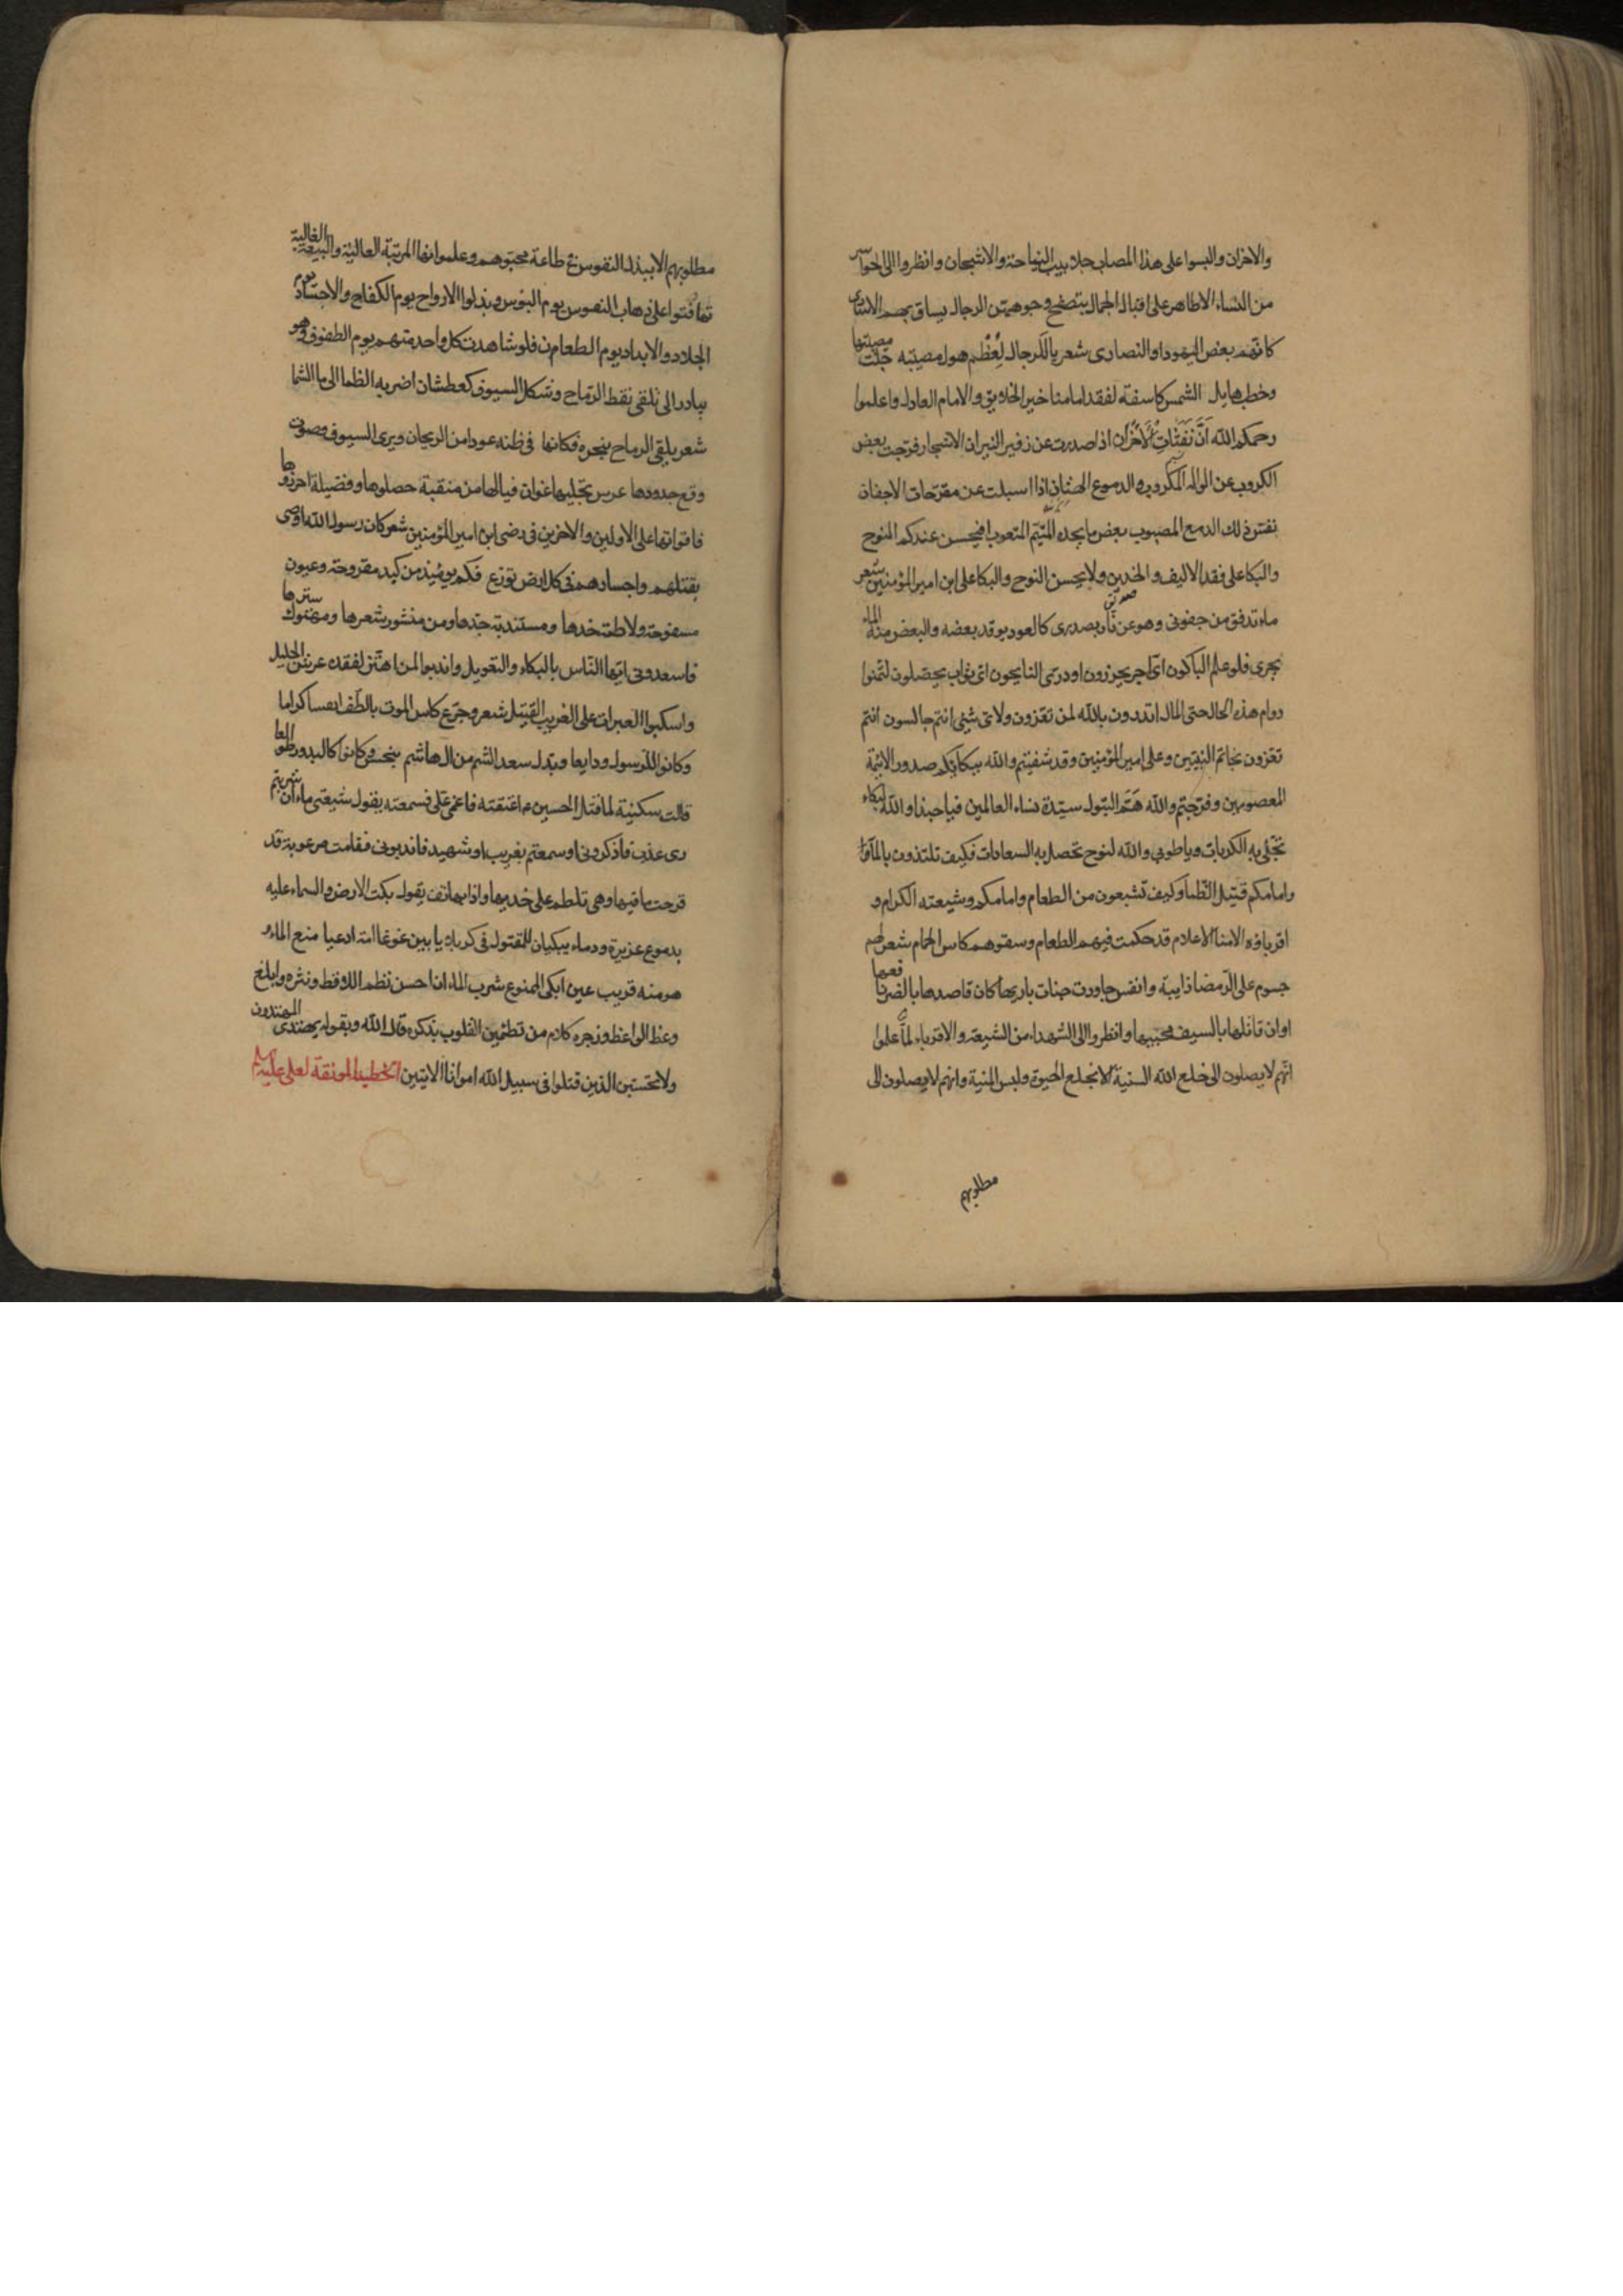 والاحزان والبسوا على هذا المصاب جلابيب النياحة والاشجان وانظروا الى الحواسر
من النساء الاطاهر على اقبال الجمال يتصفح وجوههن الرجال يساق بهم الاسارى
كانهم بعض اليهود او النصارى شعر يا للرجال لعظم هول مصيبه جلت مصيبتها
وخطب هايل الشمس كاسفة لفقد امامنا خير الخلايق والامام العادل واعلموا
رحمكم الله ان نفثات الاحزان اذا صدرت عن زفير النيران الاشجار فرجت بعض
الكروب عن الواله المكروب والدموع الهتان اذا اسبلت عن مقرحات الاجفان
نفت ذلك الدمع المصبوب بعض ما يجده المتيم المتعوب افيحسن عندكم النوح
والبكا على فقد الاليف والخدين ولا يحسن النوح والبكا على ابن امير المؤمنين شعر
ماء تدفق من جفونى وهو عن نار بصدرى كالعود يوقد بعضه والبعض منه الماء
يجرى فلو علم الباكون اى اجر يحرزون او درى النايحون اى ثواب يحصلون لتمنوا
دوام هذه الحال حتى المال اتدرون بالله لمن تعزون ولاى شيئ انتم جالسون انتم
تعزون خاتم النبيين وعلى امير المؤمنين وقد شفيتم والله ببكائكم صدور الائمة
المعصومين وفرجتم والله هم البتول سيدة نساء العالمين فيا حبذا والله البكاء
تجلى به الكربات ويا طوبى والله لنوح تحصل به السعادات فكيف تلتذون بالماء
وامامكم قتيل الظما وكيف تشبعون من الطعام وامامكم وشيعته الكرام و
اقرباؤه الامنا الاعلام قد حكمت فيهم الطعام وسقوهم كاس الحمام شعر لهم
جسوم على الرمضا ذايبة وانفس جاورت جنات باريها كان قاصدها بالضر نافعها
اوان قاتلها بالسيف محييها وانظروا الى الشهداء من الشيعة والاقرباء لما علموا
انهم لا يصلون الى خلع الله السنية الا بخلع الحيوة ولبس المنية وانهم لا يصلون الى
مطلوبهم
مطلوبهم الا ببذل النفوس فى طاعة محبوهم وعلموا انها المرتبة العالية والبيعة الغالية
تهافتوا على ذهاب النفوس يوم البؤس وبذلوا الارواح يوم الكفاح والاجساد يوم
الجلاد والابداد يوم الطعام فلو شاهدت كل واحد منهم يوم الطفوف وهو
يبادر الى تلقى نقط الرماح وشكل السيوف كعطشان اضر به الظما الى ما السما
شعر يلقى الرماح بنحره فكانها فى ظنه عود من الريحان ويرى السيوف وصوت
وقع حدودها عرس تجليها غوان فيالها من منقبة حصلوها وفضيلة احرزوها
فاقوا بها على الاولين والاخرين فى رضى ابن امير المؤمنين شعر كان رسول الله اوصى
بقتلهم واجسادهم فى كل ارض توزع فكم يومئذ من كبد مقروحة وعيون
مسفوحة ولاطمة خدها ومستندبة جدها ومن منشور شعرها ومهتوك سترها
فاسعدونى ايها الناس بالبكاء والتعويل واندبوا لمن اهتز لفقده عرش الجليل
واسكبوا العبرات على الغريب القتيل شعر وجرع كاس الموت بالطف انفسا كراما
وكانوا للرسول ودايعا وبدل سعد الشم من ال هاشم بنحس فكانوا كالبدور طوالعا
قالت سكينة لما قتل الحسين ع اعتنقته فاغمى على فسمعته يقول شيعتى ما ان شربتم
رى عذب فاذكرونى او سمعتم بغريب او شهيد فاندبونى فقامت مرعوبة قد
قرحت ماقيها وهى تلطم على خديها واذا بهاتف يقول بكت الارض والسماء عليه
بدموع غزيرة ودماء يبكيان المقتول فى كربلاء بين غوغا امة ادعيا منع الماء و
هو منه قريب عين ابكى الممنوع شرب الماء ان احسن نظم اللاقط ونثره وابلغ
وعظ الواعظ وزجره كلام من تطمئن القلوب بذكره قال الله وبقوله يهتدى المهتدون
ولا تحسبن الذين قتلوا فى سبيل الله امواتا الايتين الخطبة المونقة لعلى عليه السلام